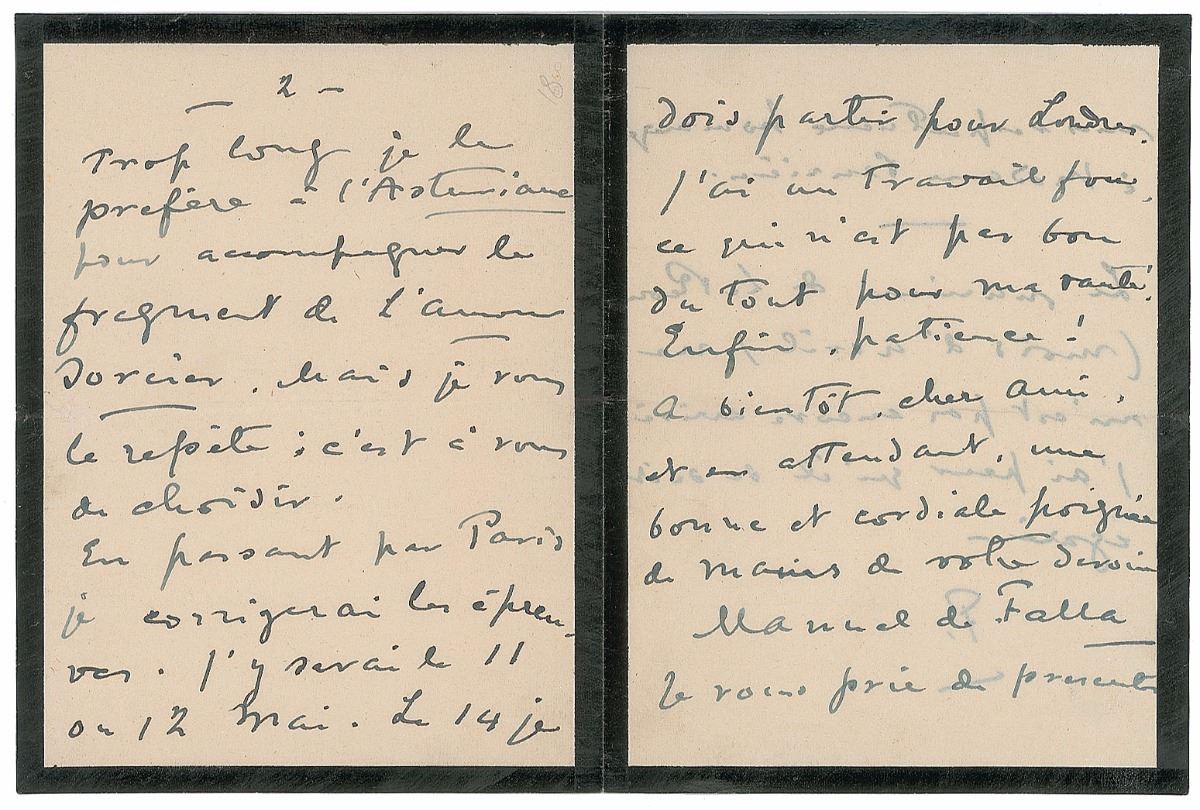 2 –
trop long je le
préfère à l'Asturiane
pour accompagner le
fragment de L'amour
Sorcier. Mais je vous
le repète ; c'est à vous
de choisir.
En passant par Paris
je corrigerai les épreu-
ves. J'y serai le 11
ou 12 Mai. Le 14 je
dois partir pour Londres.
J'ai un travail fou,
ce qui n'est pas bon
du tout pour ma santé!
Enfin, patience!
A bientôt, cher Ami,
et en attendant, une
bonne et cordiale poignée
de mains de votre dévoué
Manuel de Falla
Je vous prie de presenter